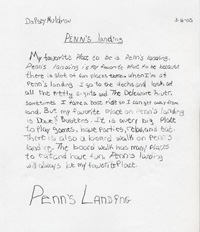 Daysey Muldrow 3-16-05
Penn's landing
My favorite place to be is Penn's landing.
Penn's landing is my favorite place to be because
there is alot of fun places there. When I'm at
Penn's landing I go to the docks and look at
all the pretty sights and The Delaware River.
Sometimes I take a boat ride so I can get away from
land. But my favorite place on Penn's landing
is Dave & Busters. It is avery big place
to Play games, have parties, relax and Eat.
There is also a board walk on Penn's
landing. The board walk has many places
to eat and have fun. Penn's landing
will always be my favorite Place.
PENN'S LANDING